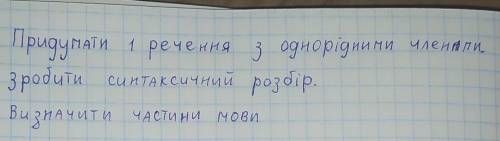 Придумати 1 речення з однорідними членами.
Зробити синтаксичний розбір.
Визначити частини мови